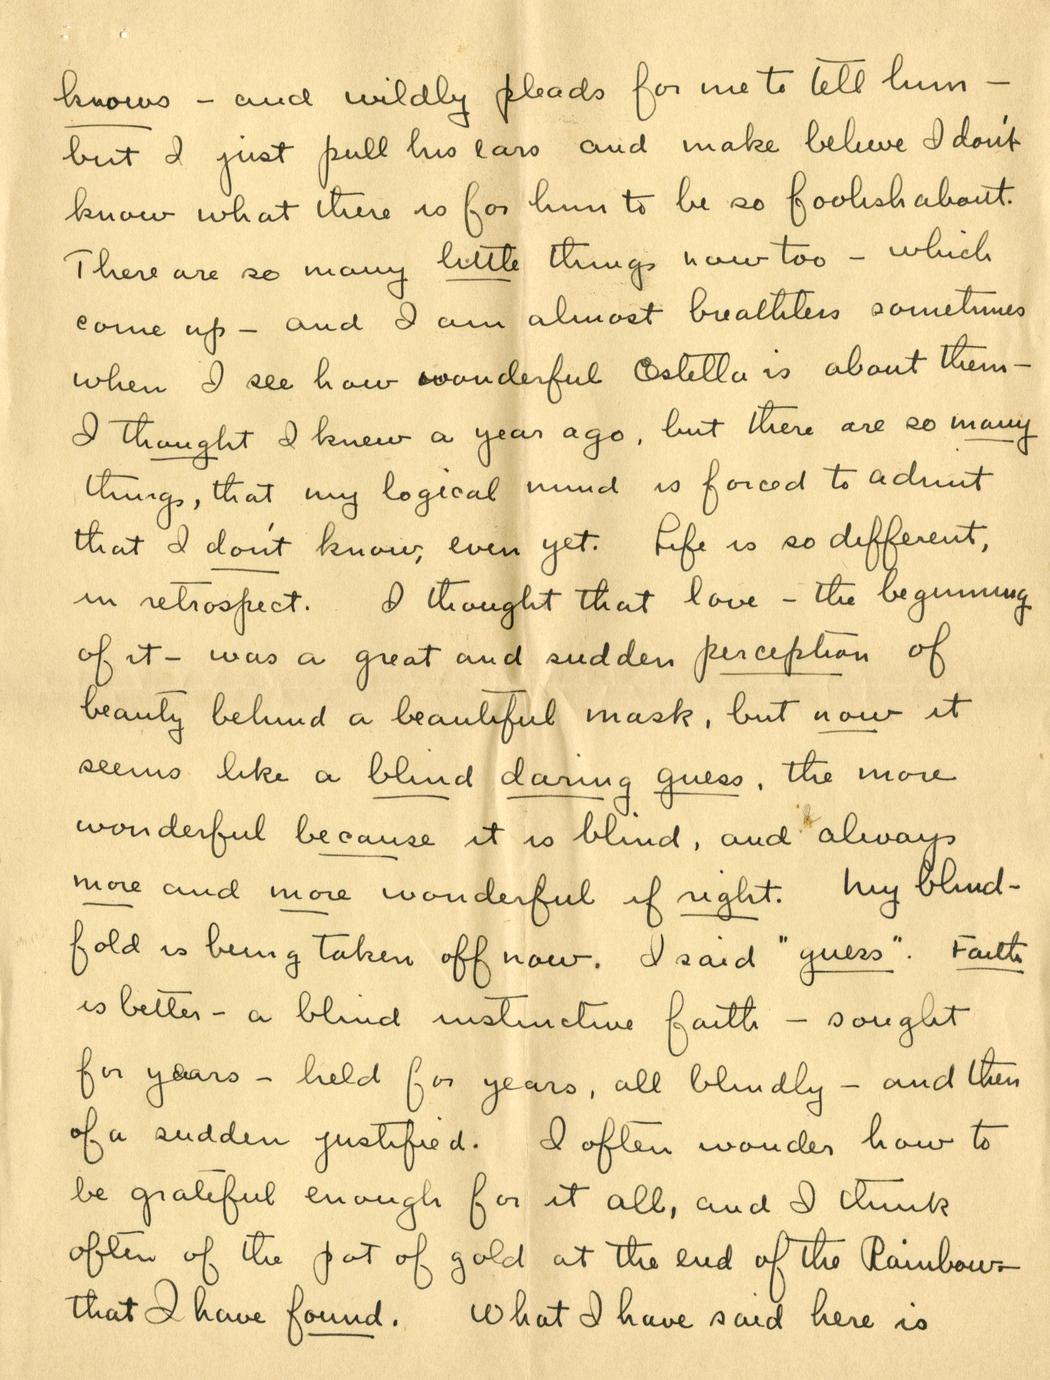 knows - and wildly pleads for me to tell him -
but I just pull his ears and make believe I don't
know what there is for him to be so foolish about.
There are so many little things now too - which
come up - and I am almost breathless sometimes
when I see how wonderful Ostella is about them -
I thought I knew a year ago, but there are so many
things, that my logical mind is forced to admit
that I don't know, even yet. Life is so different,
in retrospect. I thought that love - the beginning
of it - was a great and sudden perception of
beauty behind a beautiful mask, but now it
seems like a blind daring guess, the more
wonderful because it is blind, and always
more and more wonderful if right. My blind-
fold is being taken off now. I said "guess". Faith
is better - a blind instinctive faith - sought
for years - held for years, all blindly - and then
of a sudden justified. I often wonder how to
be grateful enough for it all, and I think
often of the pot of gold at the end of the Rainbow -
that I have found. What I have said here is